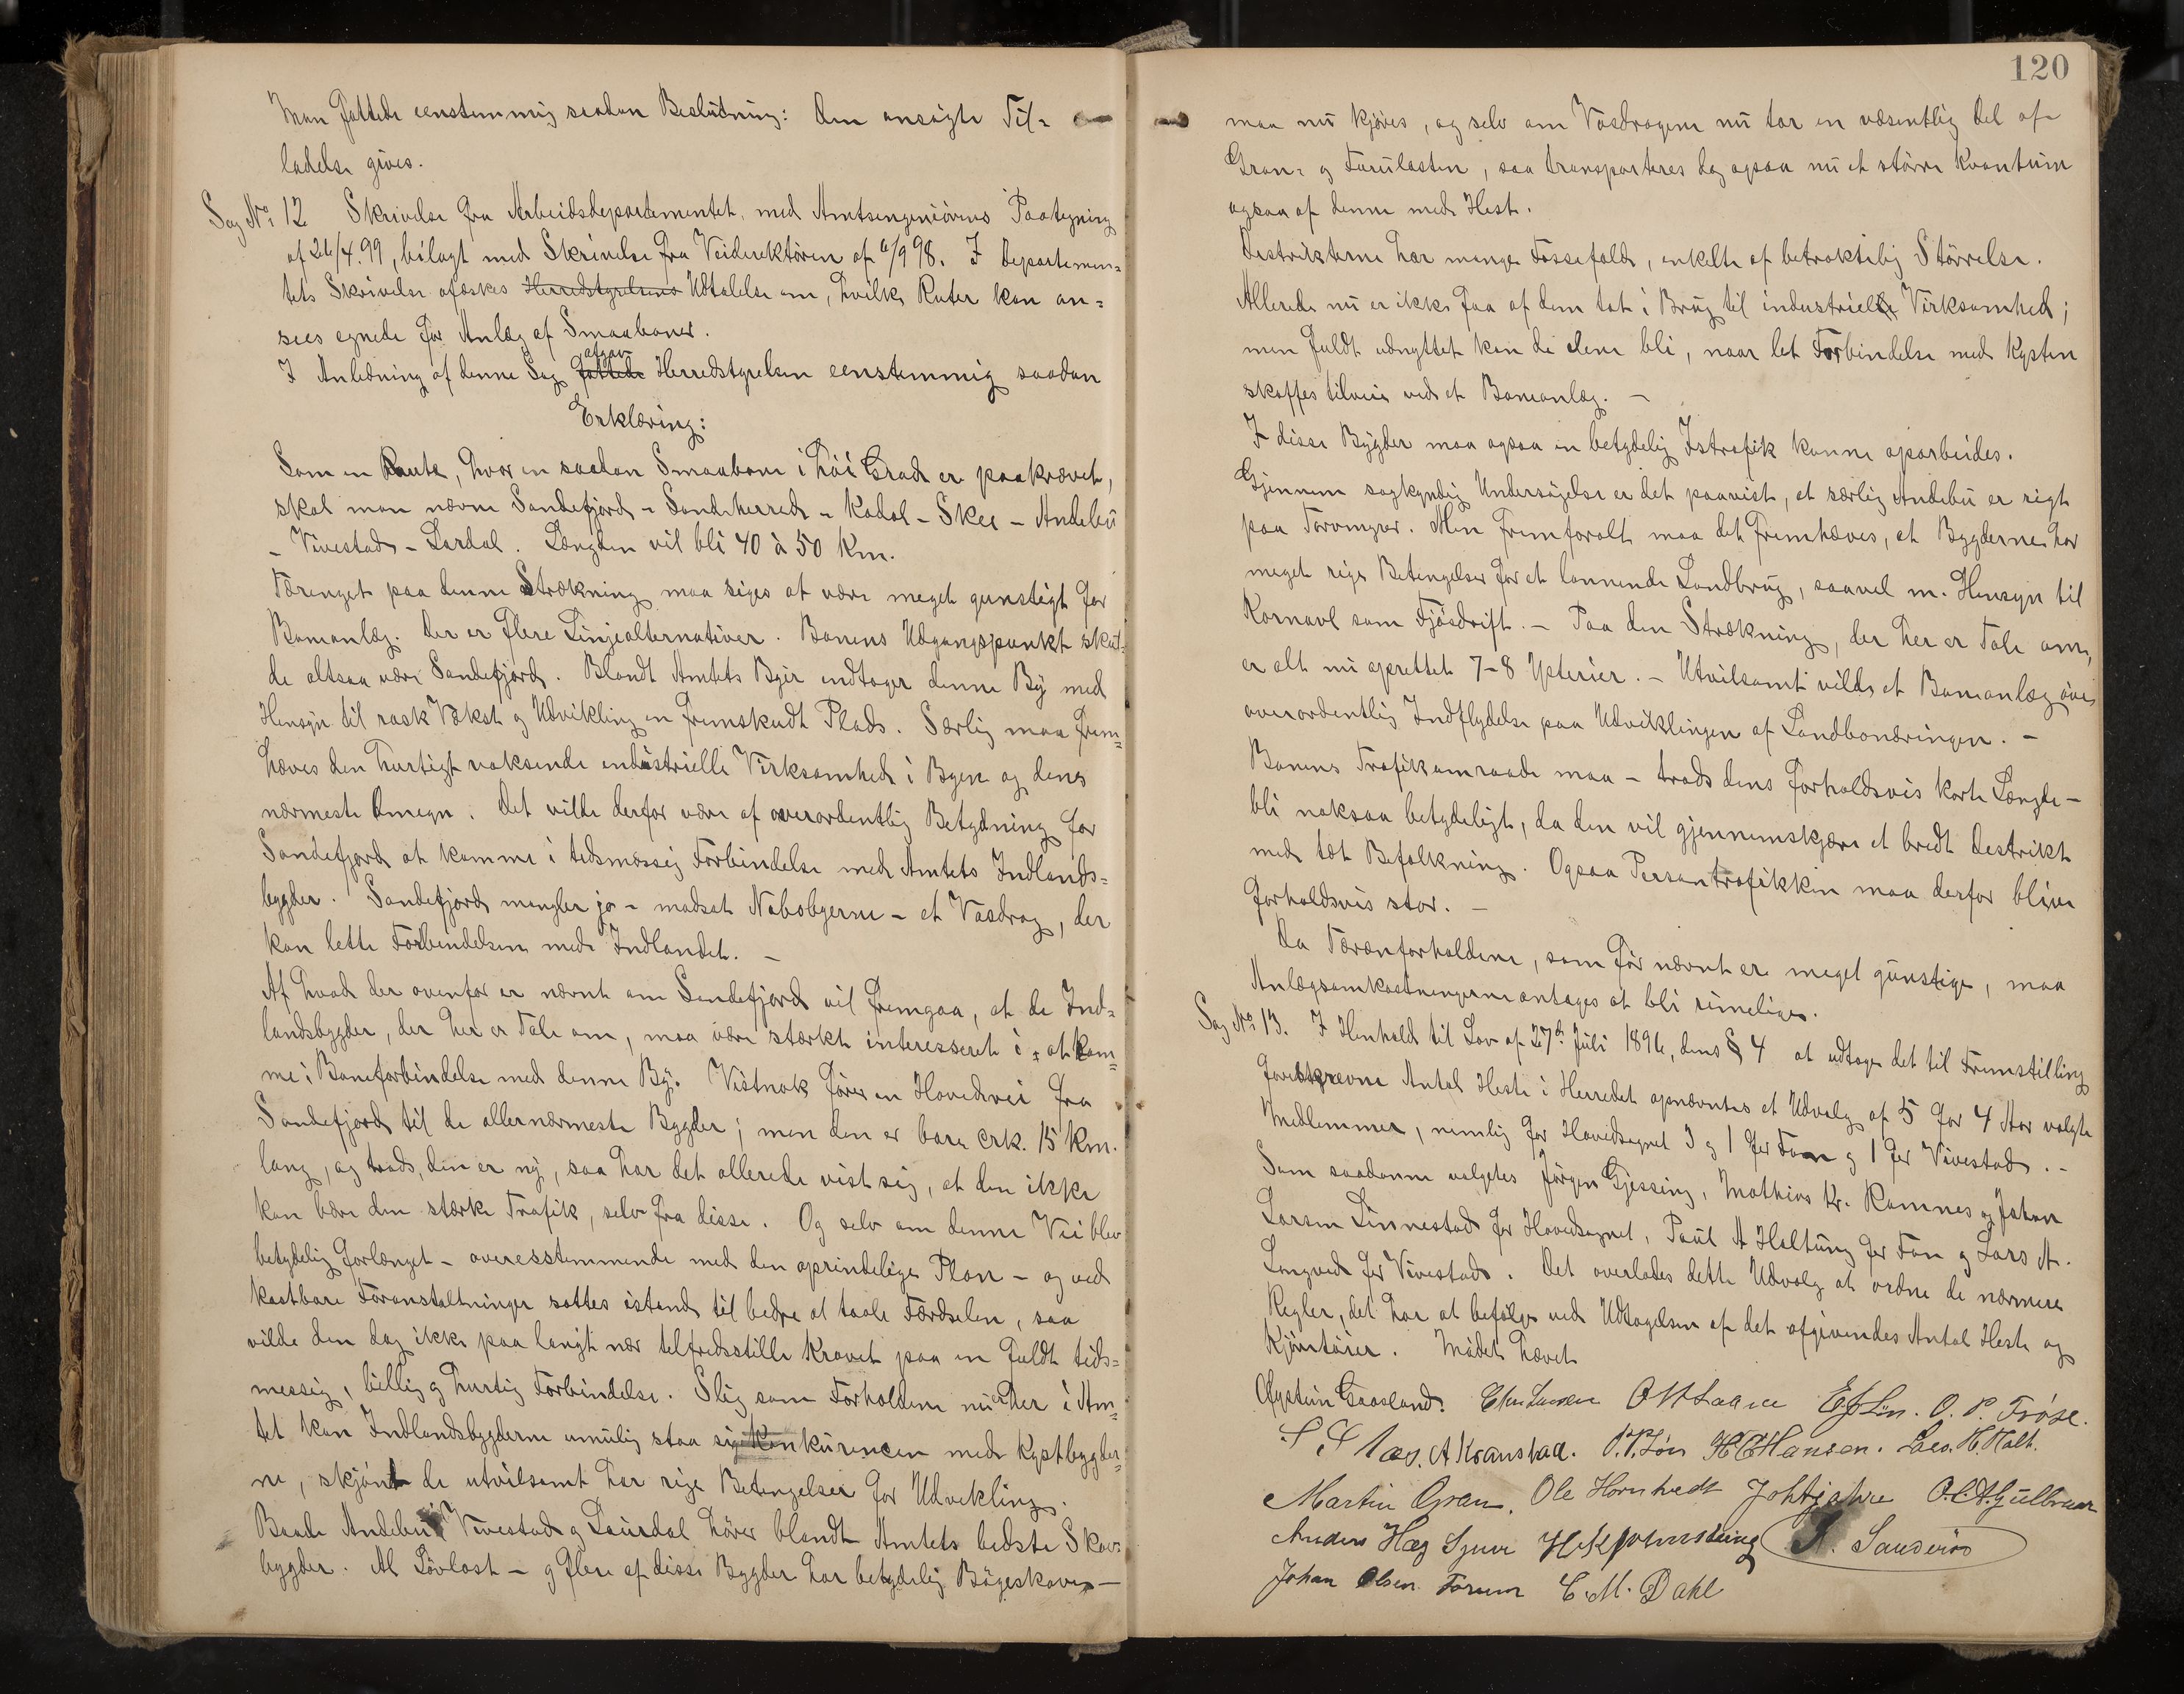 Man fattede eenstemmig saadan Beslutning: Den ansøgte Til=
ladelse gives.
Sag No 12 Skrivelse fra Arbeidsdepartementet, med Amtsingeniørens Paategning
af 26/4.99, bilagt med Skrivelse fra Veidirektøren af 6/9 98. I Departemen=
tets Skrivelse afæskes Herredstyrelsens Udtalelse om, hvilke Ruter kan an=
sees egnede for Anlæg af Smaabaner.
I Anledning af denne Sag fattede afgav Herredstyrelsen eenstemmig saadan
Erklæring:
Som en Route, hvor en saadan Smaabane i høi Grad er paakrævet,
skal man nævne Sandefjord - Sandeherred - Kodal - Skee - Andebu
- Vivestad - Lardal. Længden vil bli 40 à 50 Km.
Tærænget paa denne Strækning maa siges at være meget gunstigt for
Baneanlæg. Der er flere Linjealternativer. Banens Udgangspunkt skul=
de altsaa være Sandefjord. Blandt Amtets Byer indtager denne By med
Hensyn til rask Vækst og Udvikling en fremskudt Plads. Særlig maa frem=
hæves den hurtigt voksende industrielle Virksomhed i Byen og dens
nærmeste Omegn. Det vilde derfor være af overordentlig Betydning for
Sandefjord at komme i tidsmæssig Forbindelse med Amtets Indlands=
bygder. Sandefjord mangler jo - modsat Nabobyerne - et Vasdrag, der
kan lette Forbindelsen med Indlandet. -
Af hvad der ovenfor er nævnt om Sandefjord vil fremgaa, at de Ind=
landsbygder, der her er Tale om, maa være stærkt interesseret i at kom=
me i Baneforbindelse med denne By. Vistnok fører en Hovedvei fra
Sandefjord til de allernærmeste Bygder; men den er bare crk. 15 Km.
lang, og trods, den er ny, saa har det allerede vist sig, at den ikke
kan bære den stærke Trafik, selv fra disse. Og selv om denne Vei blev
betydelig forlænget - overesstemmende med den oprindelige Plan - og ved
kostbare Foranstaltninger sattes istand til bedre at taale Færdselen, saa
vilde den dog ikke paa langt nær tilfredsstille Kravet paa en fuldt tids=
messig, billig og hurtig Forbindelse. Slig som Forholdene nu er her i Am=
tet kan Indlandsbygderne umulig staa sig i Konkurencen med Kystbygder=
ne, skjønt de utvilsomt har rige Betingelser for Udvikling.
Baade Andebu, Vivestad og Laurdal hører blandt Amtets bedste Skov=
bygder. Al Løvlast - og flere af disse Bygder har betydelig Bøgeskove -
120
maa nu kjøres, og selv om Vasdragene nu tar en væsentlig Del af
Gran= og Furulasten, saa transporteres dog ogsaa nu et større Kvantum
ogsaa af denne med Hest.
Destrikterne har mange Fossefald, enkelte af betraktelig Størrelse.
Allerede nu er ikke faa af dem tat i Brug til industriell Virksomhed;
men fuldt udnyttet kan de dene bli, naar let Forbindelse med Kysten
skaffes tilveie ved et Baneanlæg. -
I disse Bygder maa ogsaa en betydelig Istrafik kunne oparbeides.
Gjennem sagkyndig Undersøgelse er det paavist, at særlig Andebu er rigt
paa Torvmyrer. Men fremforalt maa det fremhæves, at Bygderne har
meget rige Betingelser for et lønnende Landbrug, saavel m. Hensyn til
Kornavl som Fjøsdrift. - Paa den Strækning, der her er Tale om,
er alt nu oprettet 7-8 Ysterier. - Utvilsomt vilde et Baneanlæg øve
overordentlig Indflydelse paa Udviklingen af Landbonæringen. -
Banens Trafikomraade maa - trods dens forholdsvis korte Længde -
bli noksaa betydeligt, da den vil gjennemskjære et bredt Destrikt
med tæt Befolkning. Ogsaa Persontrafikken maa derfor blive
forholdsvis stor. -
Da Tærænforholdene, som før nævnt er meget gunstige, maa
Anlægsomkostningerne antages at bli rimelige.
Sag No 13. I Henhold til Lov af 27de Juli 1896, dens § 4 at udtage det til Fremstilling
foreskrevne Antal Heste i Herredet opnævntes et Udvalg af 5 for 4 Aar valgte
Medlemmer, nemlig for Hovedsognet 3 og 1 for Fon og 1 for Vivestad. -
Som saadanne valgtes Jørgen Gjessing, Mathias Kr. Ramnes og Johan
Larsen Linnestad for Hovedsognet, Paul A Heltung for Fon og Lars A.
Langved for Vivestad. Det overlades dette Udvalg at ordne de nærmere
Regler, det har at befølge ved Udtagelsen af det afgivendes Antal Heste og
Kjøretøier. Mødet hævet
Øystein Graosland. O. P. Frøse.
A Kranstad. H C Hansen. Lars. H. Holt.
Martin Gran. Ole Hornhedt
Anders Hag S. Sanderød
Johan Olsen Forum C. M. Dahl